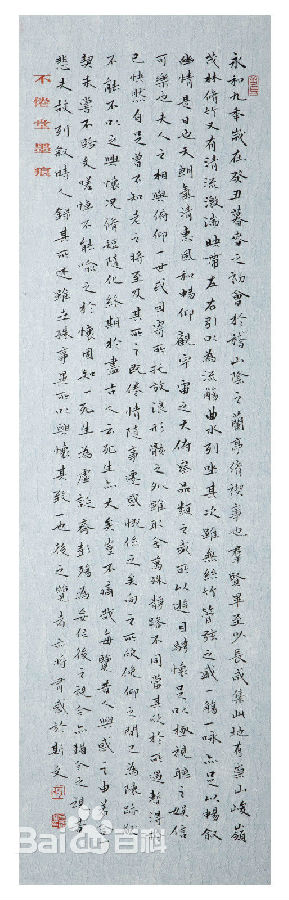 永和九年歲在癸丑暮春之初會於稽山陰之蘭亭脩禊事也羣賢畢至少長咸集此地有崇山峻嶺
茂林脩竹又有清流激湍映帶左右引以為流觴曲水列坐其次雖無絲竹管弦之盛一觴一咏亦足以暢敘
幽情是日也天朗氣清惠風和暢仰觀宇宙之大俯察品類之盛所以遊目騁懷足以極視聽之娛信
可樂也夫人之相與俯仰一世或因寄所託放浪形骸之外雖取舍萬殊靜躁不同當其欣於所遇暫得
已快然自足曾不知老之將至及其所之既倦情隨事遷感慨係之矣向之所欣俛仰之間已為陳跡猶
不能不以之興懷況脩短隨化終期於盡古人云死生亦大矣豈不痛哉每覽昔人興感之由若合一
契未嘗不臨文嗟悼不能喻之於懷固知一死生為虛誕齊彭殤為妄作後之視今亦猶今之視昔
悲夫故列敘時人錄其所述雖世殊事異所以興懷其致一也後之覽者亦將有感於斯文
不倦堂墨痕
Baidu百科